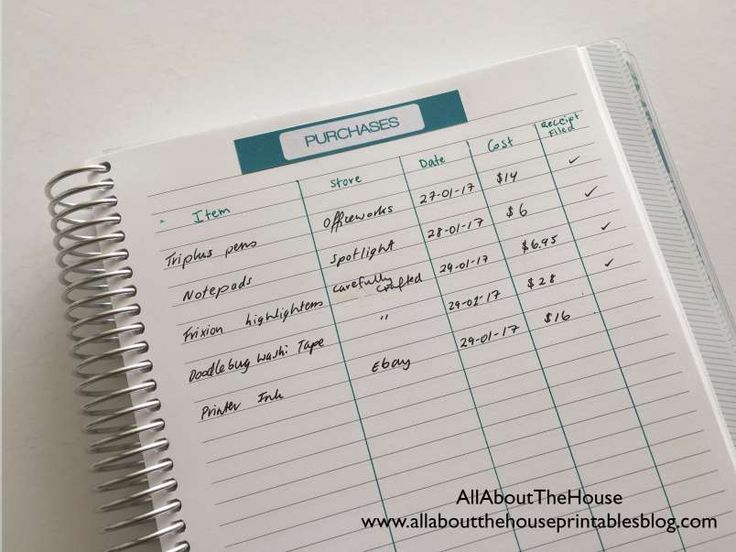 PURCHASES
Item Store Date Cost Receipt Filed
Triplus pens Officeworks 27-01-17 $14 ✓
Notepads Spotlight 28-01-17 $6 ✓
Frixion highlighters carefully crafted 29-01-17 $6.95 ✓
Doodlebug Washi Tape " 29-01-17 $28 ✓
Printer Ink Ebay 29-01-17 $16
AllAboutTheHouse
www.allaboutthehouseprintablesblog.com